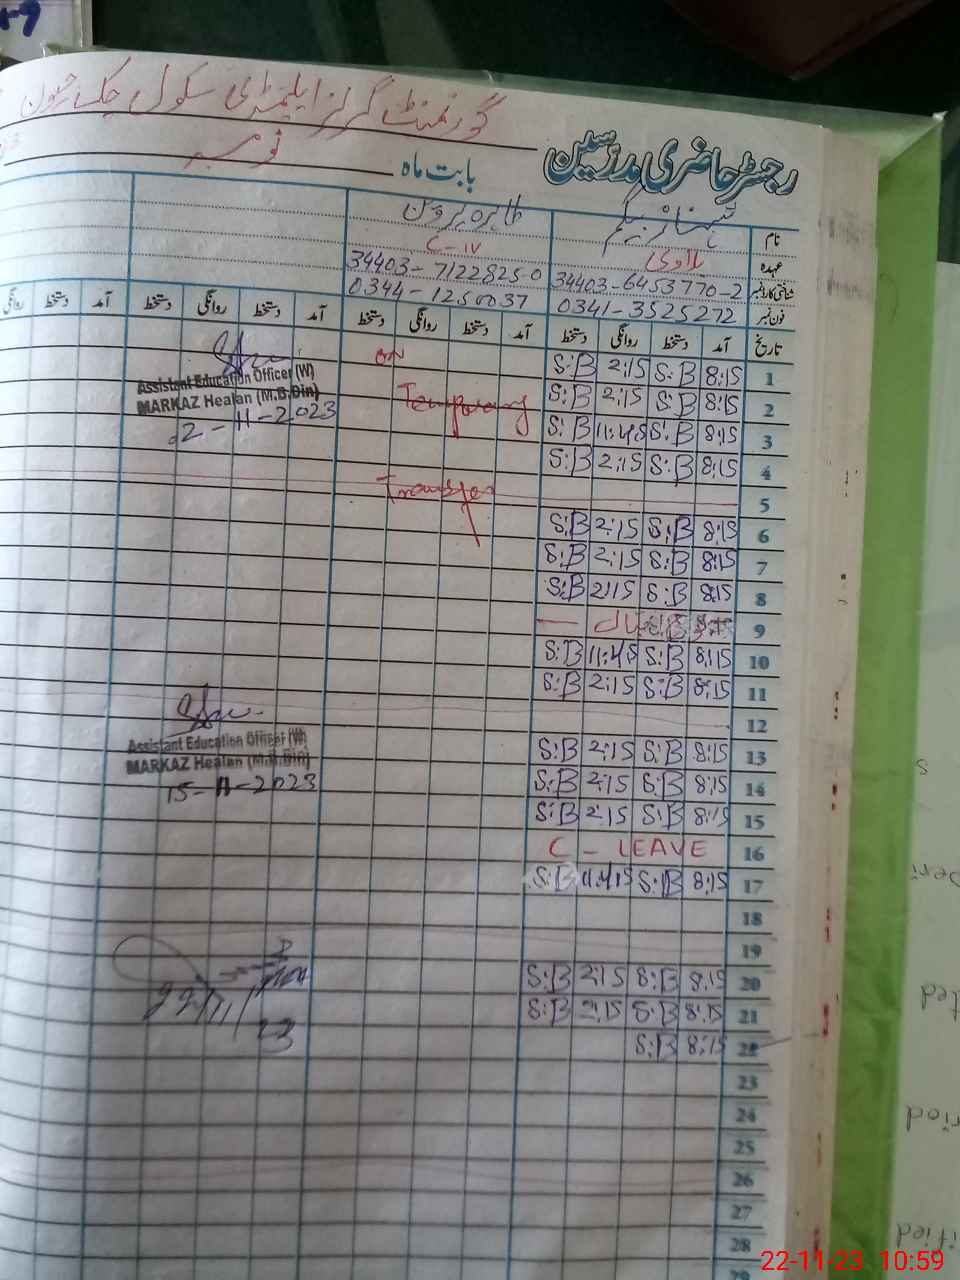 گورنمنٹ گرلز ایلیمنٹری سکول چک
رجسٹر حاضری مدرسین
بابت ماہ نومبر
نام شہناز بیگم طاہرہ پروین
عہدہ C-IV
شناختی کارڈ نمبر 34403-6453770-2 34403-7122825-0
فون نمبر 0341-3525272 0344-1250037
تاریخ آمد دستخط روانگی دستخط آمد دستخط روانگی دستخط آمد دستخط روانگی دستخط آمد دستخط روانگی
1 8:15 S:B 2:15 S:B on
Assistant Education Officer (W)
MARKAZ Healan (M.B.Din)
02-11-2023
2 8:15 S:B 2:15 S:B Temporary
3 8:15 S:B 11:45 S:B
4 8:15 S:B 2:15 S:B
5 Transfer
6 8:15 S:B 2:15 S:B
7 8:15 S:B 2:15 S:B
8 8:15 S:B 2:15 S:B
9
10 8:15 S:B 11:45 S:B
11 8:15 S:B 2:15 S:B
12
13 8:15 S:B 2:15 S:B
Assistant Education Officer (W)
MARKAZ Healan (M.B.Din)
15-11-2023
14 8:15 S:B 2:15 S:B
15 8:15 S:B 2:15 S:B
16 C - LEAVE
17 8:15 S:B 11:45 S:B
18
19
20 8:15 S:B 2:15 S:B
21 8:15 S:B 2:15 S:B
22/11/23
22 8:15 S:B
23
24
25
26
27
28
29
22-11-23 10:59